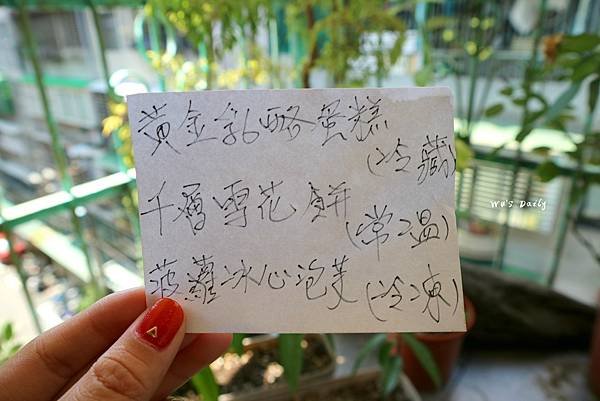 黃金乳酪蛋糕
(冷藏)
千層雪花餅
(常溫)
菠蘿冰心泡芙(冷凍)
Wu's Daily